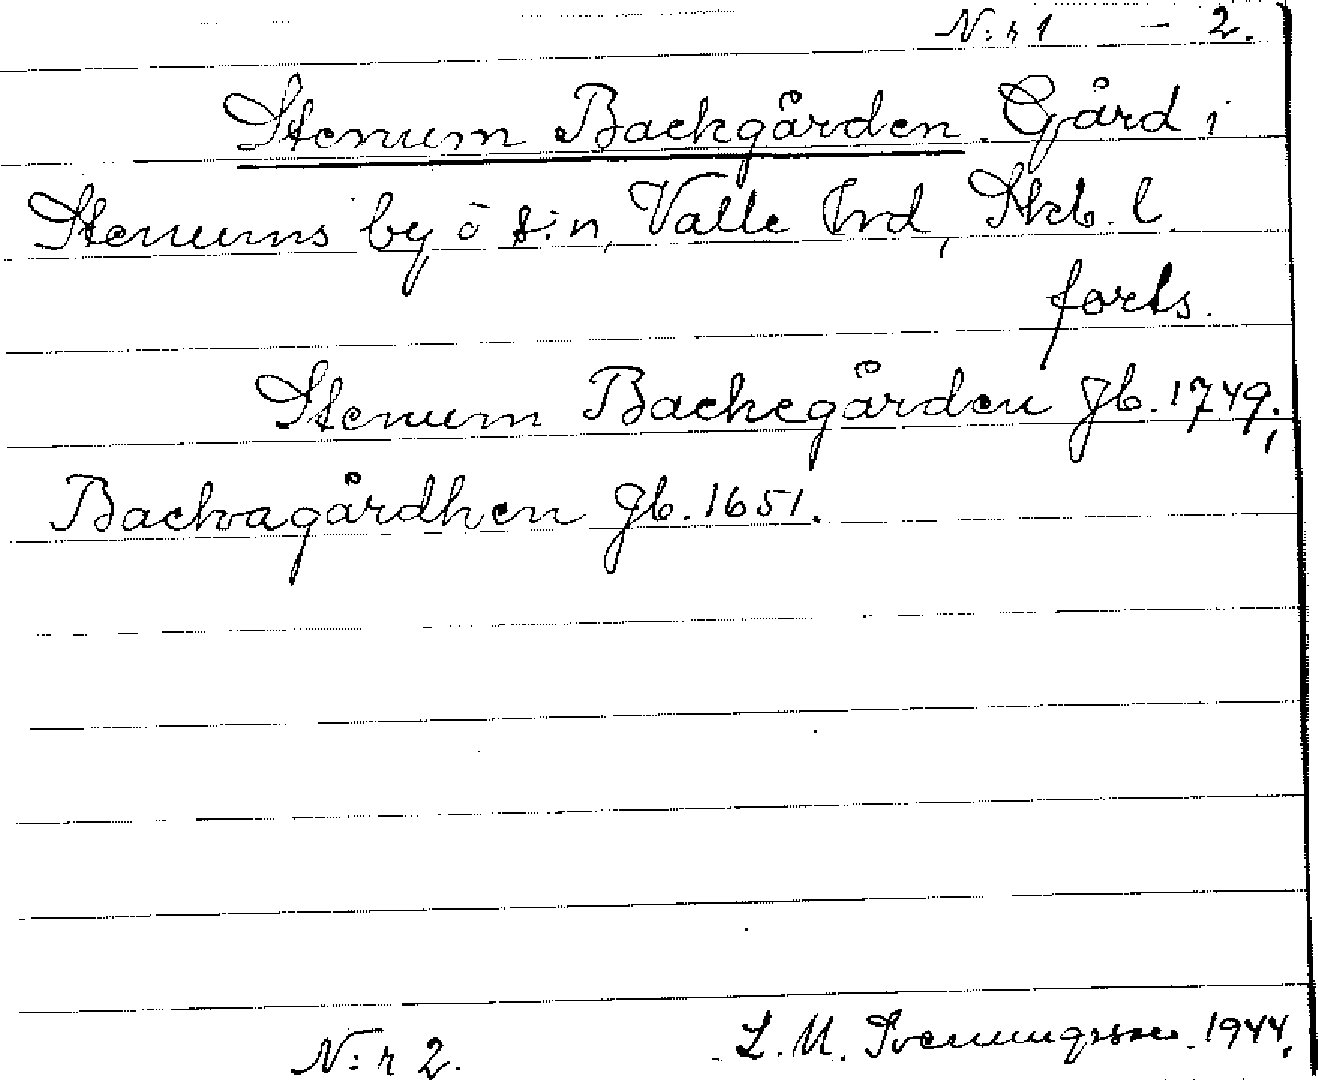 N:r 1 - 2.
Stenum Backgården Gård i
Stenums by ō s:n, Valle hrd, Skb. l
forts.
Stenum Backegården Jb. 1749,
Backagårdhen Jb. 1651.
N:r 2. L. M. Svenungsson 1944.